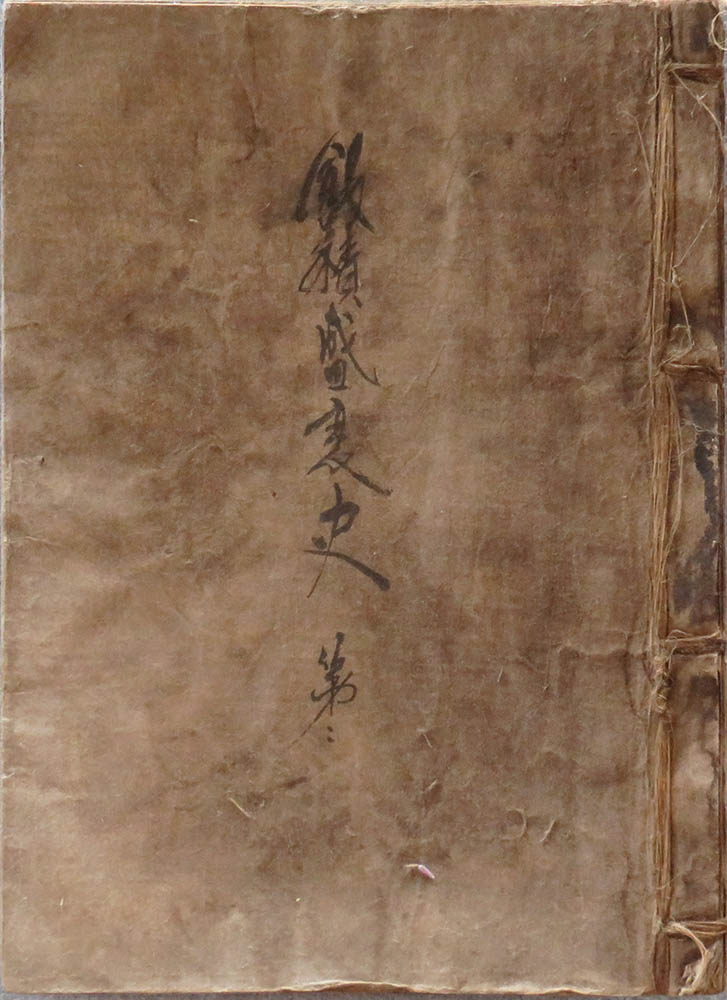 飯積盛衰史 第二